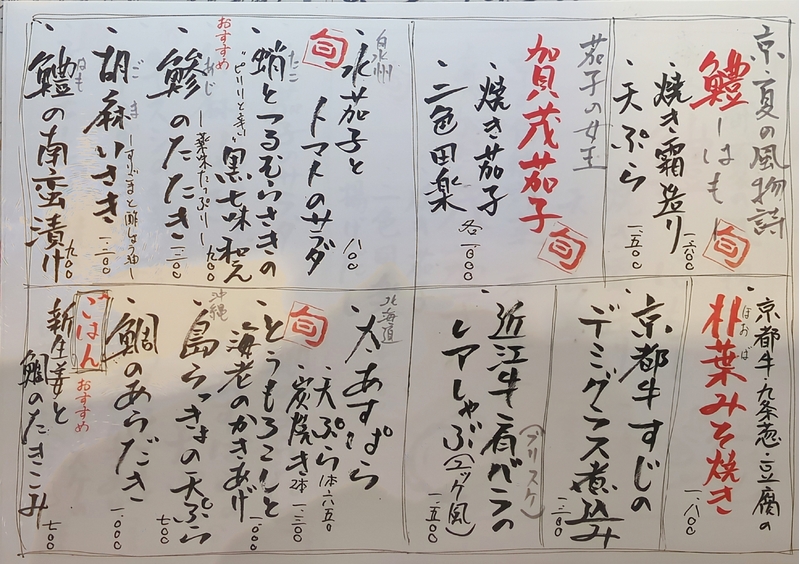 京・夏の風物詩
鱧―はも 旬
・焼き霜造り 一、六〇〇
・天ぷら 一、五〇〇
茄子の女王
賀茂茄子 旬
・焼き茄子
・二色田楽 各一、〇〇〇
泉州
・水茄子と
トマトのサラダ
旬
・蛸とつるむらさきの
たこ
"ピリリと辛い"黒七味和え 九〇〇
おすすめ
・鯵のたたき 一、二〇〇
あじ
―薬味たっぷり―
・胡麻いさき 一、二〇〇
ごま
・鱧の南蛮漬け 九〇〇
はも
・京都牛・九条葱・豆腐の
朴葉みそ焼き 一、八〇〇
ほおば
・京都牛すじの
デミグラス煮込み
・近江牛・肩バラの
(ブリスケ)
レアしゃぶ(ユッケ風) 一、五〇〇
北海道
・太あすぱら
・天ぷら 1本 六五〇
・炭焼き 2本 一、三〇〇
旬
・とうもろこしと
海老のかきあげ 一、〇〇〇
沖縄
・島らっきょの天ぷら 七〇〇
・鯛のあらだき 一、〇〇〇
ごはん
おすすめ
新生姜と
鯛のたきこみ 七〇〇